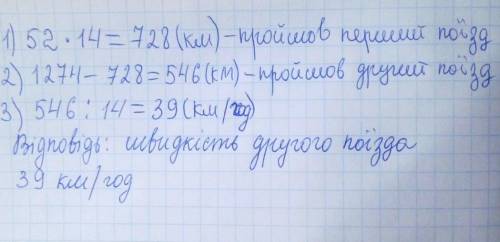 1) 52 · 14 = 728 (км) – пройшов перший поїзд
2) 1274 – 728 = 546 (км) – пройшов другий поїзд
3) 546 : 14 = 39 (км/год)
Відповідь: швидкість другого поїзда
39 км/год